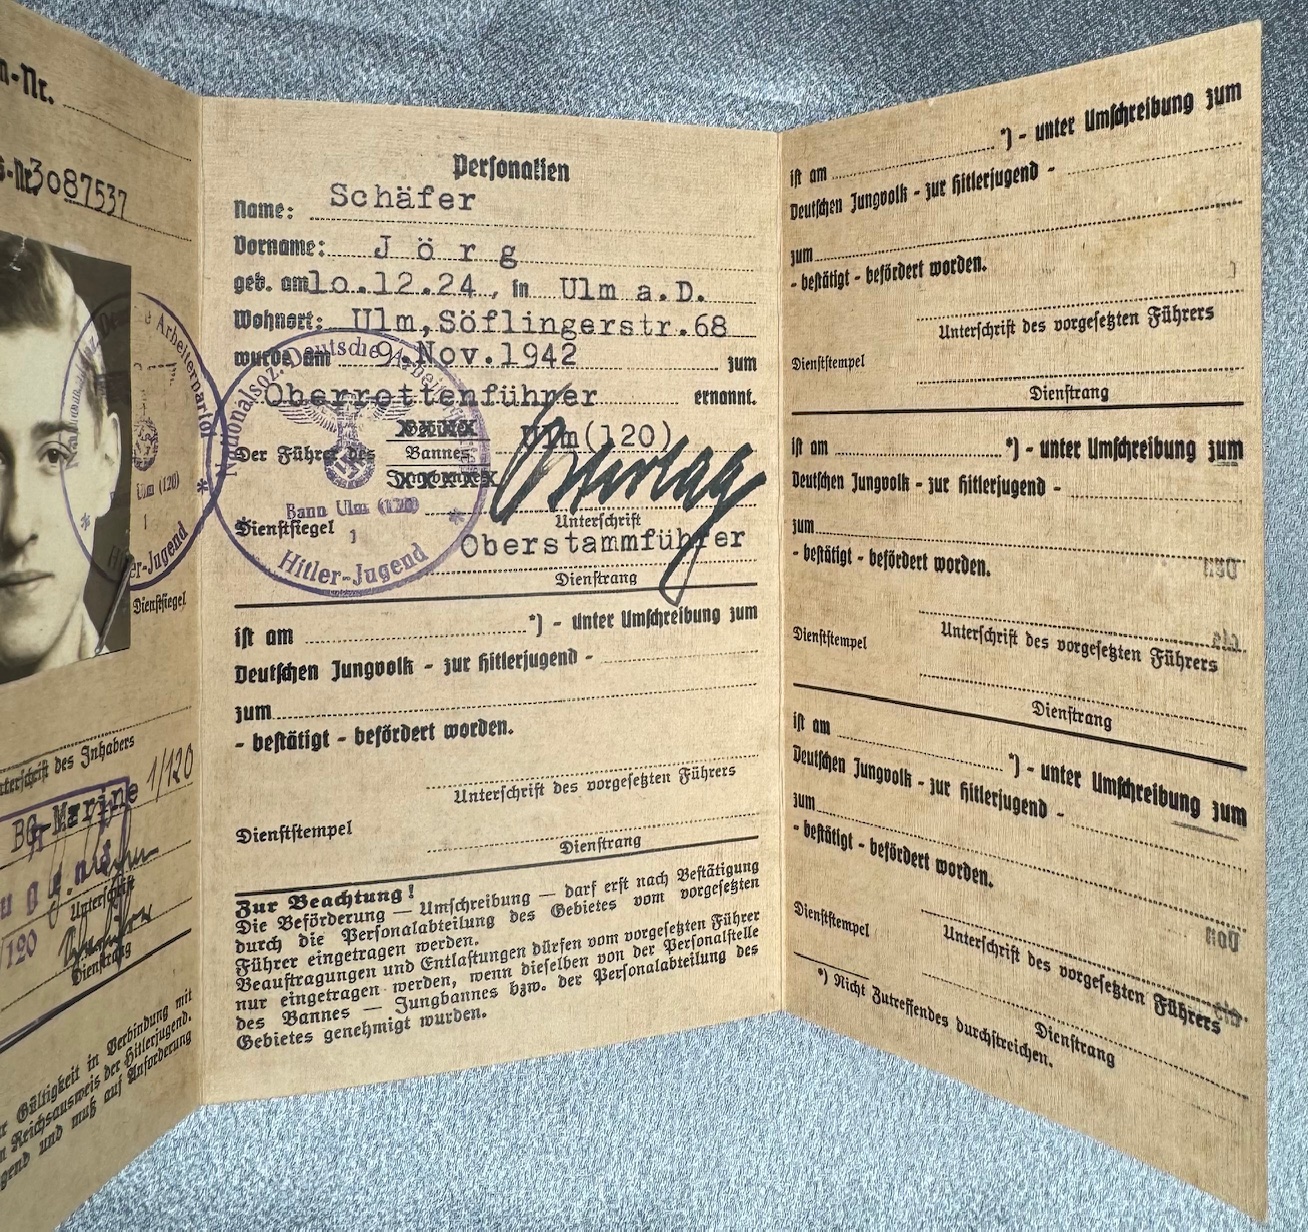 n-Nr.
s-Nr. 3087537
Dienstsiegel
Unterschrift des Inhabers
1/120
BG-Marine
Unterschrift
/120
Dienstrang
Gültigkeit in Verbindung mit
Reichsausweis der Hitlerjugend.
gend und muß auf Anforderung
Personalien
Name: Schäfer
Vorname: Jörg
geb. am 10.12.24, in Ulm a.D.
Wohnort: Ulm, Söflingerstr. 68
wurde am 9. Nov. 1942 zum
Oberrottenführer ernannt.
Der Führer des Bannes Ulm(120)
Nationalsoz. Deutsche Arbeiterpartei
Bann Ulm (120)
1
Hitler-Jugend
Dienstsiegel
Unterschrift
Oberstammführer
Dienstrang
ist am *) - unter Umschreibung zum
Deutschen Jungvolk - zur Hitlerjugend -
zum
- bestätigt - befördert worden.
Unterschrift des vorgesetzten Führers
Dienststempel
Dienstrang
Zur Beachtung!
Die Beförderung — Umschreibung — darf erst nach Bestätigung
durch die Personalabteilung des Gebietes vom vorgesetzten
Führer eingetragen werden.
Beauftragungen und Entlastungen dürfen vom vorgesetzten Führer
nur eingetragen werden, wenn dieselben von der Personalstelle
des Bannes — Jungbannes bzw. der Personalabteilung des
Gebietes genehmigt wurden.
ist am *) - unter Umschreibung zum
Deutschen Jungvolk - zur Hitlerjugend -
zum
- bestätigt - befördert worden.
Unterschrift des vorgesetzten Führers
Dienststempel
Dienstrang
ist am *) - unter Umschreibung zum
Deutschen Jungvolk - zur Hitlerjugend -
zum
- bestätigt - befördert worden.
Unterschrift des vorgesetzten Führers
Dienststempel
Dienstrang
ist am *) - unter Umschreibung zum
Deutschen Jungvolk - zur Hitlerjugend -
zum
- bestätigt - befördert worden.
Dienststempel
Unterschrift des vorgesetzten Führers
Dienstrang
*) Nicht Zutreffendes durchstreichen.